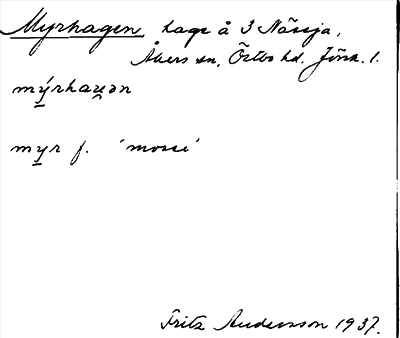 Myrhagen hage å 3 Nässja,
Åkers sn, Östbo hd. Jönk. l.
mýrhaʉən
myr f. 'mosse'
Fritz Andersson 1937.